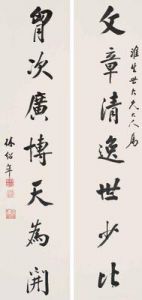 淮生世大兄大人屬
文章清逸世少比
胷次廣博天為開
林紹年